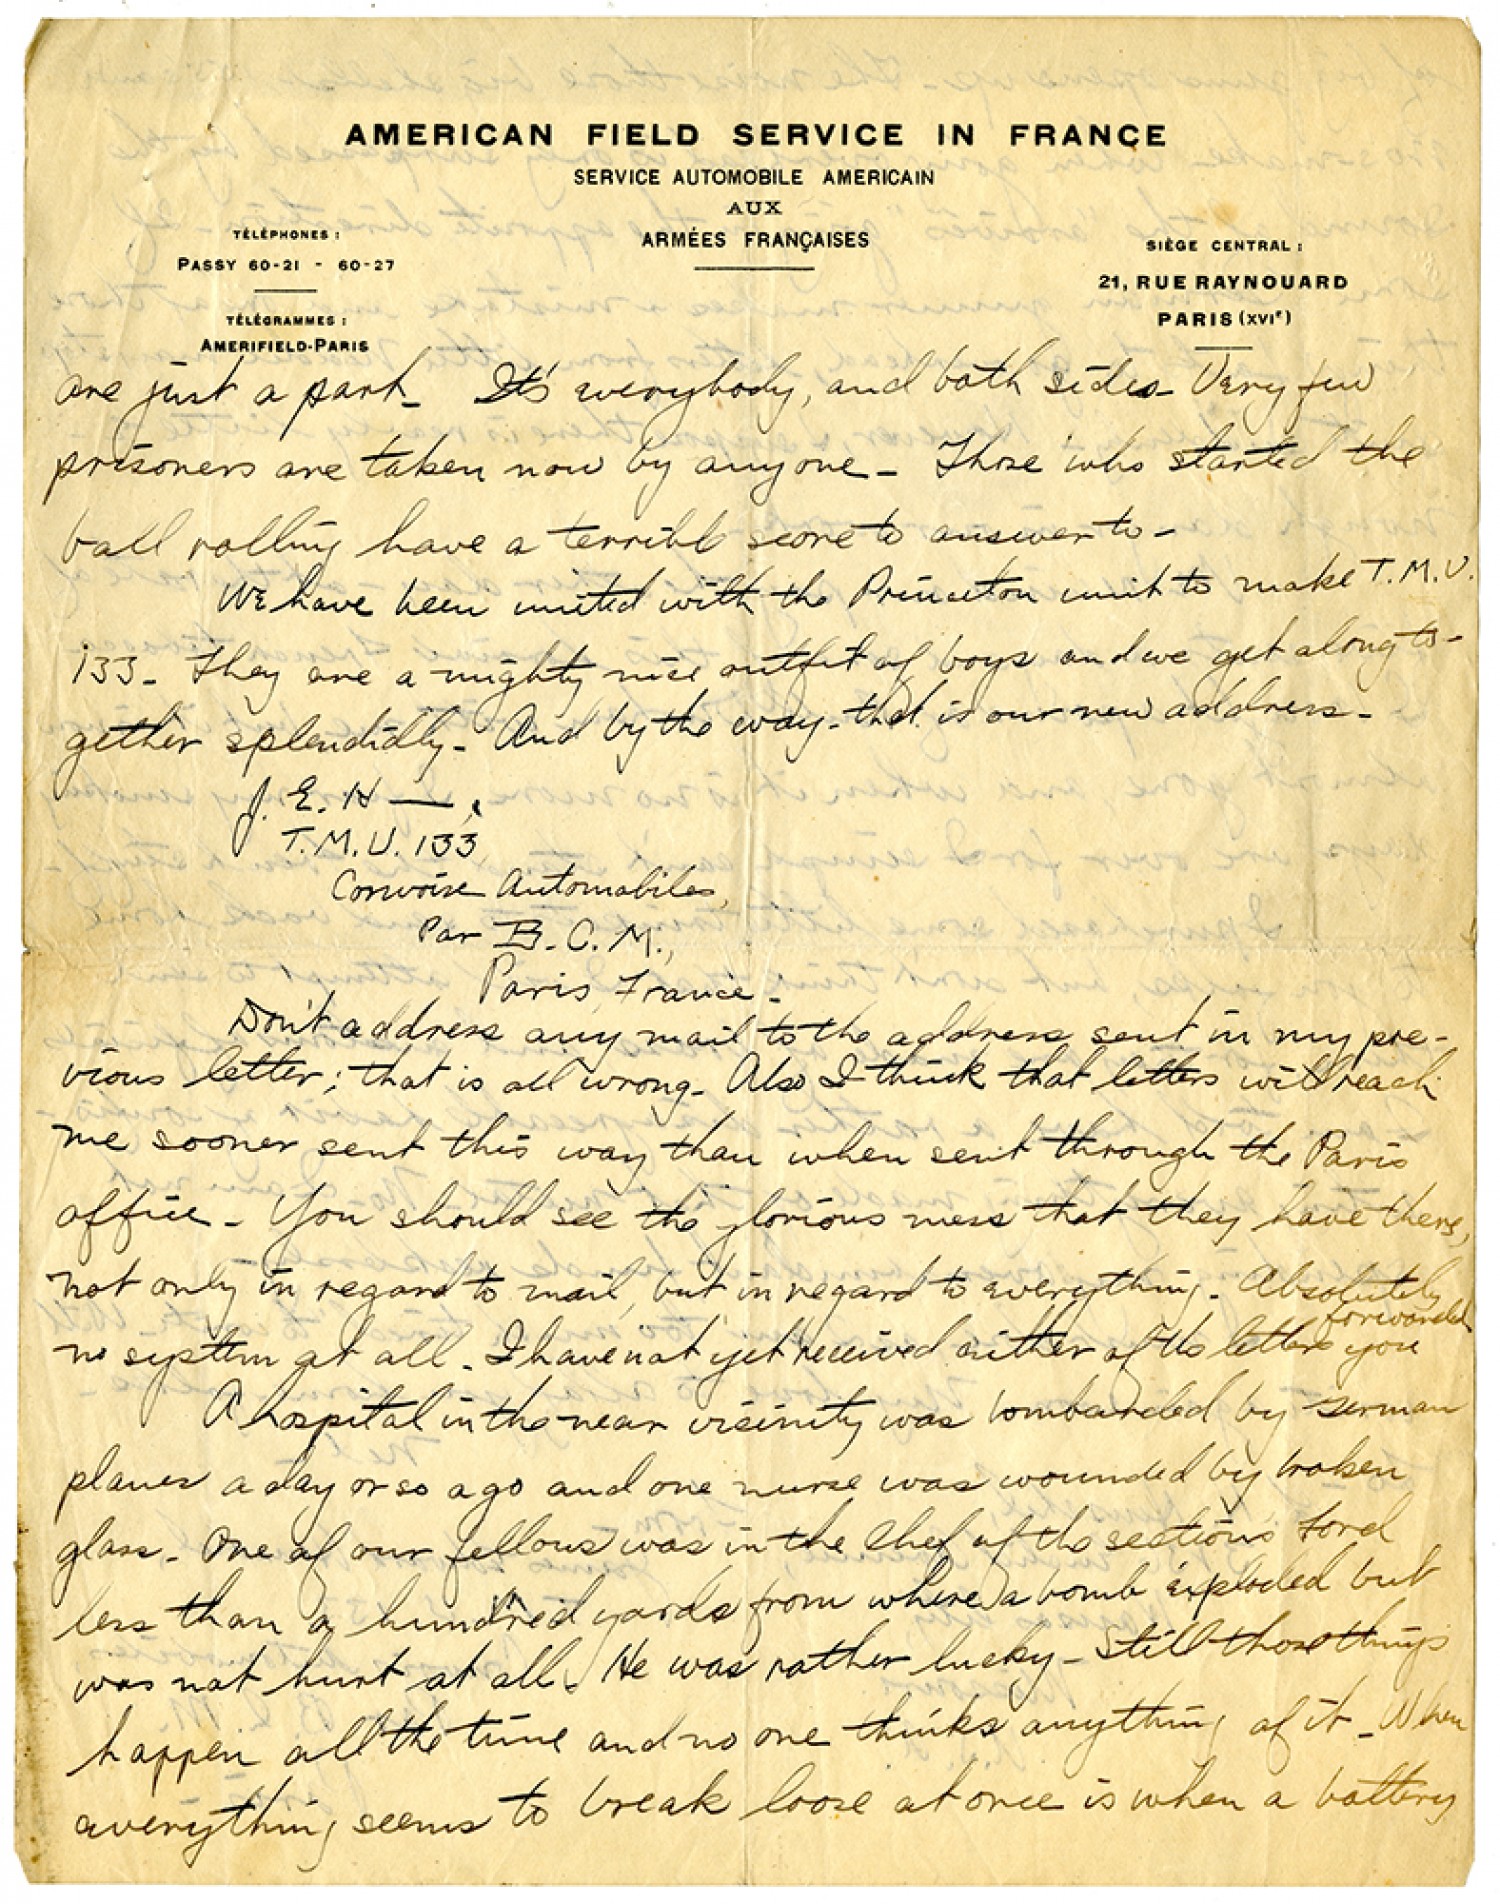 AMERICAN FIELD SERVICE IN FRANCE
SERVICE AUTOMOBILE AMERICAIN
AUX
ARMÉES FRANÇAISES
TÉLÉPHONES :
PASSY 60-21 - 60-27
TÉLÉGRAMMES :
AMERIFIELD-PARIS
SIÈGE CENTRAL :
21, RUE RAYNOUARD
PARIS (XVIe)
are just a part - It's everybody, and both sides - Very few
prisoners are taken now by anyone - Those who started the
ball rolling have a terrible score to answer to -
We have been united with the Princeton unit to make T.M.U.
133 - They are a mighty nice outfit of boys and we get along to-
gether splendidly - And by the way - that is our new address -
J. E. H —,
T.M.U. 133
Convoise Automobiles,
Par B.C.M.,
Paris, France -
Don't address any mail to the address sent in my pre-
vious letter; that is all wrong - Also I think that letters will reach
me sooner sent this way than when sent through the Paris
office - You should see the glorious mess that they have there,
not only in regard to mail, but in regard to everything - Absolutely
no system at all - I have not yet received either of the letters you forwarded
A hospital in the near vicinity was bombarded by German
planes a day or so ago and one nurse was wounded by broken
glass - One of our fellows was in the Chef of the sections Ford
less than a hundred yards from where a bomb exploded but
was not hurt at all. He was rather lucky - Still those things
happen all the time and no one thinks anything of it - When
everything seems to break loose at once is when a battery